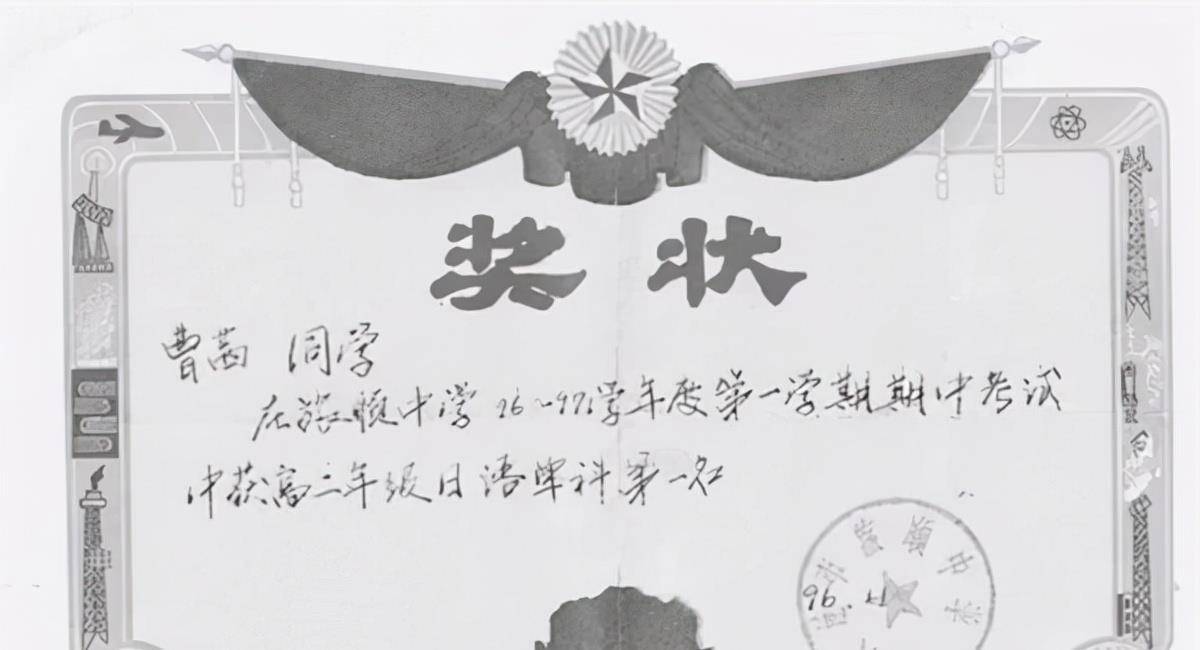 奖状
曹茜 同学
在旅顺中学96~97学年度第一学期期中考试
中获高二年级日语单科第一名
旅顺中
96.